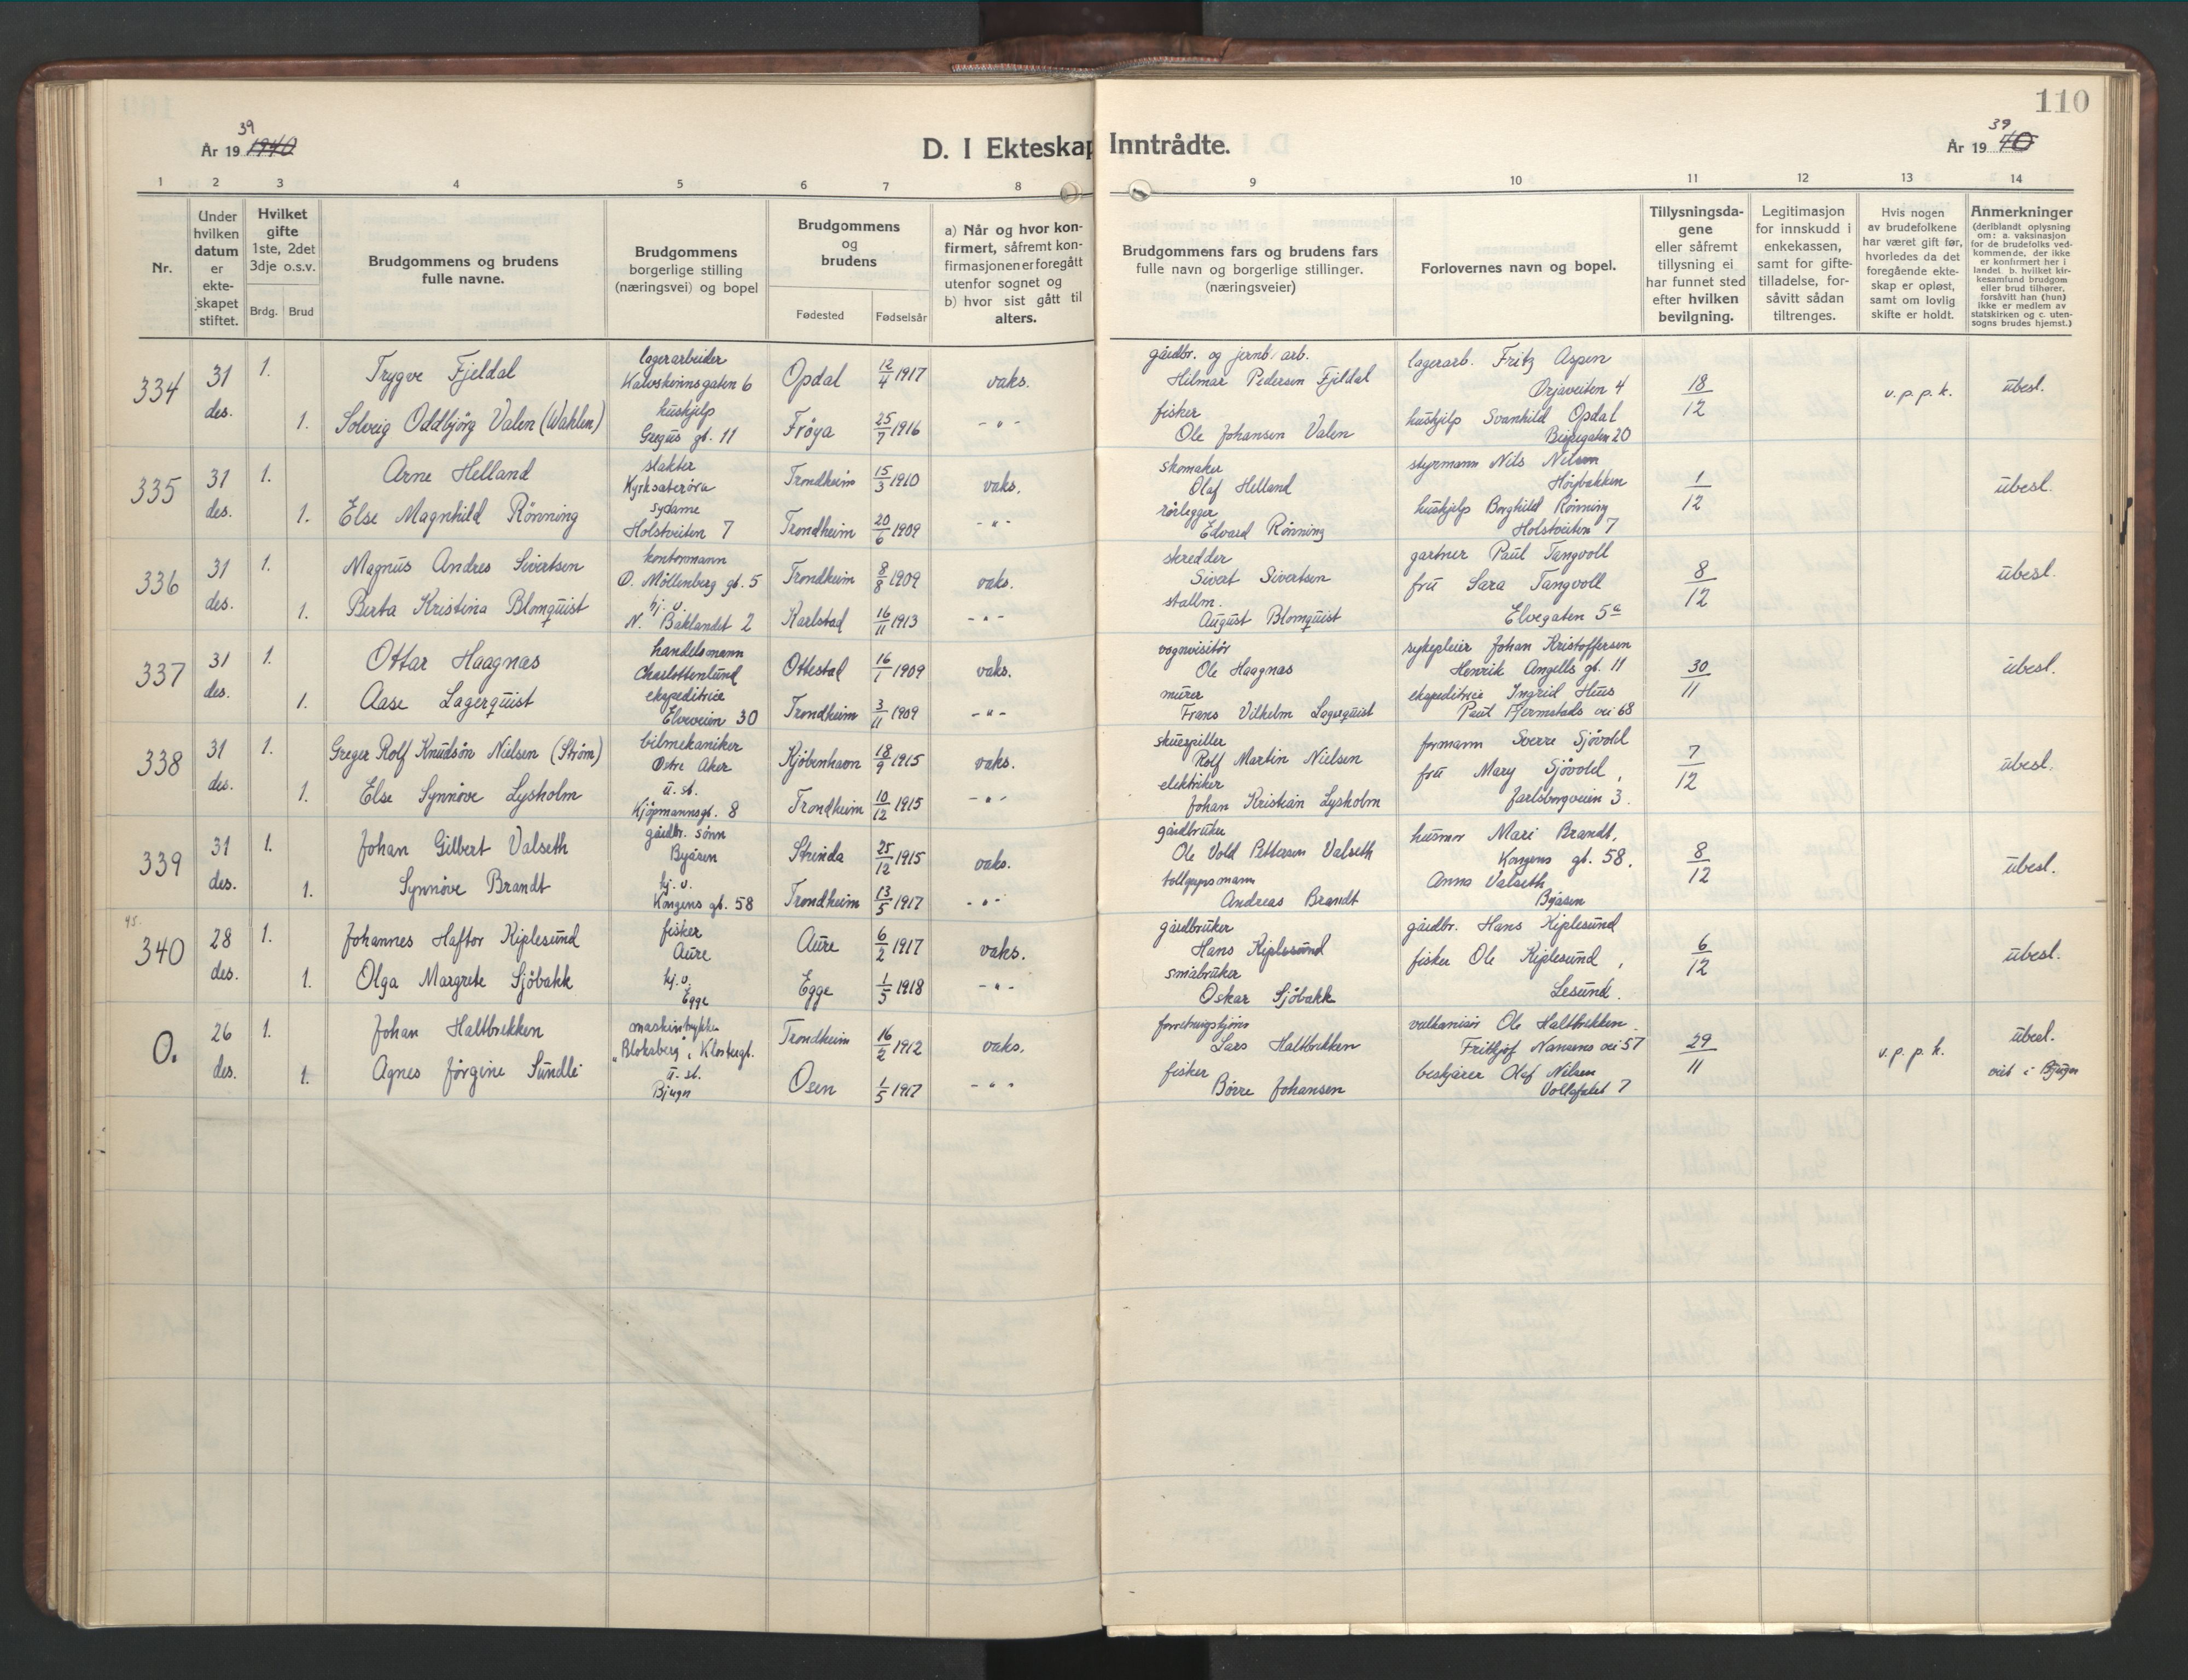 110
39
År 19 1940
D. I Ekteskap Inntrådte.
39
År 19 40
1 2 3 4 5 6 7 8 9 10 11 12 13 14
Nr.
Under hvilken datum er ekte-skapet stiftet.
Hvilket gifte 1ste, 2det 3dje o.s.v.
Brdg. Brud
Brudgommens og brudens fulle navne.
Brudgommens borgerlige stilling (næringsvei) og bopel
Brudgommens og brudens
Fødested Fødselsår
a) Når og hvor kon-firmert, såfremt kon-firmasjonen er foregått utenfor sognet og b) hvor sist gått til alters.
Brudgommens fars og brudens fars fulle navn og borgerlige stillinger. (næringsveier)
Forlovernes navn og bopel.
Tillysningsda-gene eller såfremt tillysning ei har funnet sted efter hvilken bevilgning.
Legitimasjon for innskudd i enkekassen, samt for gifte-tilladelse, for-såvitt sådan tiltrenges.
Hvis nogen av brudefolkene har været gift før, hvorledes da det foregående ekte-skap er opløst, samt om lovlig skifte er holdt.
Anmerkninger (deriblandt oplysning om: a. vaksinasjon for de brudefolks ved-kommende, der ikke er konfirmert her i landet. b. hvilket kir-kesamfund brudgom eller brud tilhører, forsåvitt han (hun) ikke er medlem av statskirken og c. uten-sogns brudes hjemst.)
334 31 des. 1. Trygve Fjeldal lagerarbeider Kalvskinnsgaten 6 Opdal 12/4 1917 vaks. gårdbr. og jernb. arb. Hilmar Pedersen Fjeldal lagerarb. Fritz Aspen Örjaveiten 4 18/12 v.p.p.k. ubesl.
1. Solveig Oddbjørg Valen (Wahlen) hushjelp Gregus gt. 11 Frøya 25/7 1916 - " - fisker Ole Johansen Valen hushjelp Svanhild Opdal Bispegaten 20
335 31 des. 1. Arne Helland slakter Kyrksæterøra Trondheim 15/3 1910 vaks. skomaker Olaf Helland styrmann Nils Nilsen Höybakken 1/12 ubesl.
1. Else Magnhild Rönning sydame Holstveiten 7 Trondheim 20/6 1909 - " - rørlegger Edvard Rønning hushjelp Borghild Rønning Holstveiten 7
336 31 des. 1. Magnus Andres Sivertsen kontormann O. Möllenberg gt. 5 Trondheim 8/8 1909 vaks. skredder Sivert Sivertsen gartner Paul Tangvoll 8/12 ubesl.
1. Berta Kristina Blomquist hj. v. N. Baklandet 2 Karlstad 16/11 1913 - " - stallm. August Blomquist fru Sara Tangvoll Elvegaten 5a
337 31 des. 1. Ottar Haagnas handelsmann Charlottenlund Ottestad 16/1 1909 vaks. vognvisitör Ole Haagnas sykepleier Johan Kristoffersen Henrik Angells gt. 11 30/11 ubesl.
1. Aase Lagerquist ekspeditrice Elveveien 30 Trondheim 3/11 1909 - " - murer Frans Vilhelm Lagerquist ekspeditrice Ingrid Huus Paul Fjermstads vei 68
338 31 des. 1. Greger Rolf Knudsön Nielsen (Strøm) bilmekaniker Østre Aker Kjöbenhavn 18/9 1915 vaks. skuespiller Rolf Martin Nielsen formann Sverre Sjövold 7/12 ubesl.
1. Else Synnöve Lysholm u. st. Kjöpmannsgt. 8 Trondheim 10/12 1915 - " - elektriker Johan Kristian Lysholm fru Mary Sjövold, Jarlsborgveien 3.
339 31 des. 1. Johan Gilbert Valseth gårdbr. sönn Byåsen Strinda 25/12 1915 vaks. gårdbruker Ole Vold Pettersen Valseth husmor Mari Brandt, Kongens gt. 58. 8/12 ubesl.
1. Synnöve Brandt hj. v. Kongens gt. 58 Trondheim 13/5 1917 - " - tollopsmann Andreas Brandt Anna Valseth Byåsen
45.
340 28 des. 1. Johannes Haftor Kiplesund fisker Aure Aure 6/2 1917 vaks. gårdbruker Hans Kiplesund gårdbr. Hans Kiplesund 6/12 ubesl.
1. Olga Margrete Sjöbakk hj. v. Egge Egge 1/5 1918 - " - småbruker Oskar Sjöbakk fisker Ole Kiplesund, Lesund.
0. 26 des. 1. Johan Haltbrekken maskintrykker "Bloksberg", Klostergt. Trondheim 16/2 1912 vaks. Lars Haltbrekken vulkanisör Ole Haltbrekken. Fridtjof Nansens vei 57 29/11 v.p.p.k. ubesl.
1. Agnes Jörgine Sundli u. st. Bjugn Osen 1/5 1917 - " - fisker Börre Johansen beskjærer Olaf Nilsen Vollafallet 7 viet i Bjugn